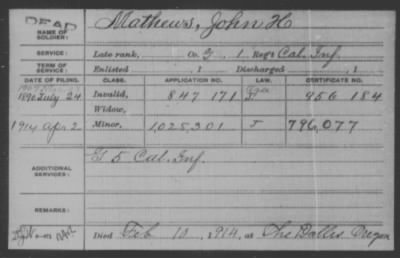 DEAD
NAME OF SOLDIER: Mathews, John H
SERVICE: Late rank, Co. G, 1 Reg't Cal. Inf.
TERM OF SERVICE: Enlisted , 1 Discharged , 1
DATE OF FILING. CLASS. APPLICATION NO. LAW. CERTIFICATE NO.
1890 July 24 Invalid, 847 171 956 184
Widow,
1914 Apr 2 Minor, 1025,301 J 796,077
ADDITIONAL SERVICES: G 5 Cal. Inf.
REMARKS:
Died Feb 10, 1914, at The Dalles Oregon